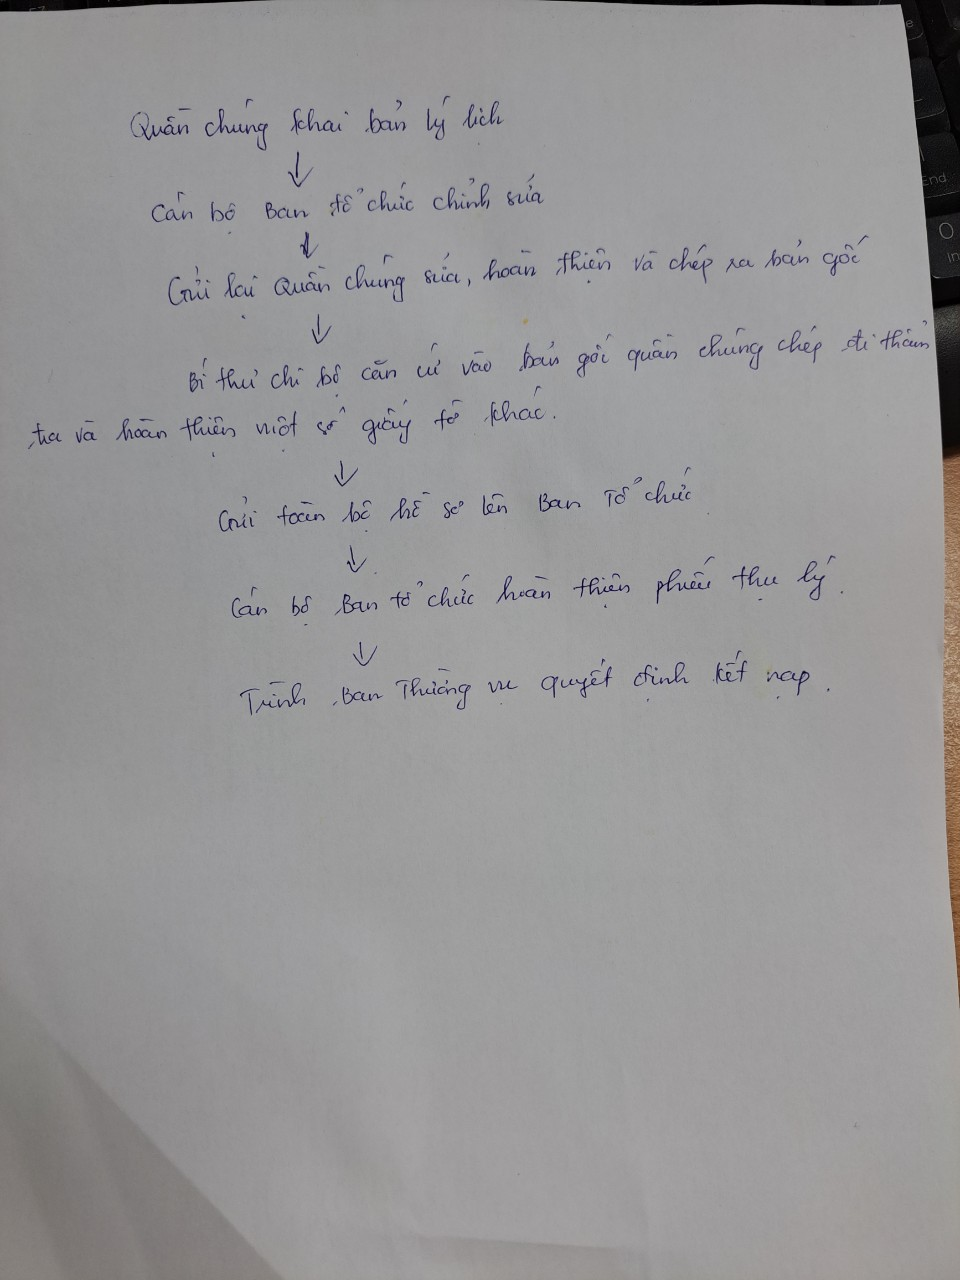 Quần chúng khai bản lý lịch
↓
Cán bộ Ban tổ chức chỉnh sửa
↓
Gửi lại Quần chúng sửa, hoàn thiện và chép ra bản gốc
↓
Bí thư chi bộ căn cứ vào bản gốc quần chúng chép đi thẩm
tra và hoàn thiện một số giấy tờ khác.
↓
Gửi toàn bộ hồ sơ lên Ban Tổ chức
↓
Cán bộ Ban tổ chức hoàn thiện phiếu thụ lý.
↓
Trình Ban Thường vụ quyết định kết nạp.
End
0
In
e